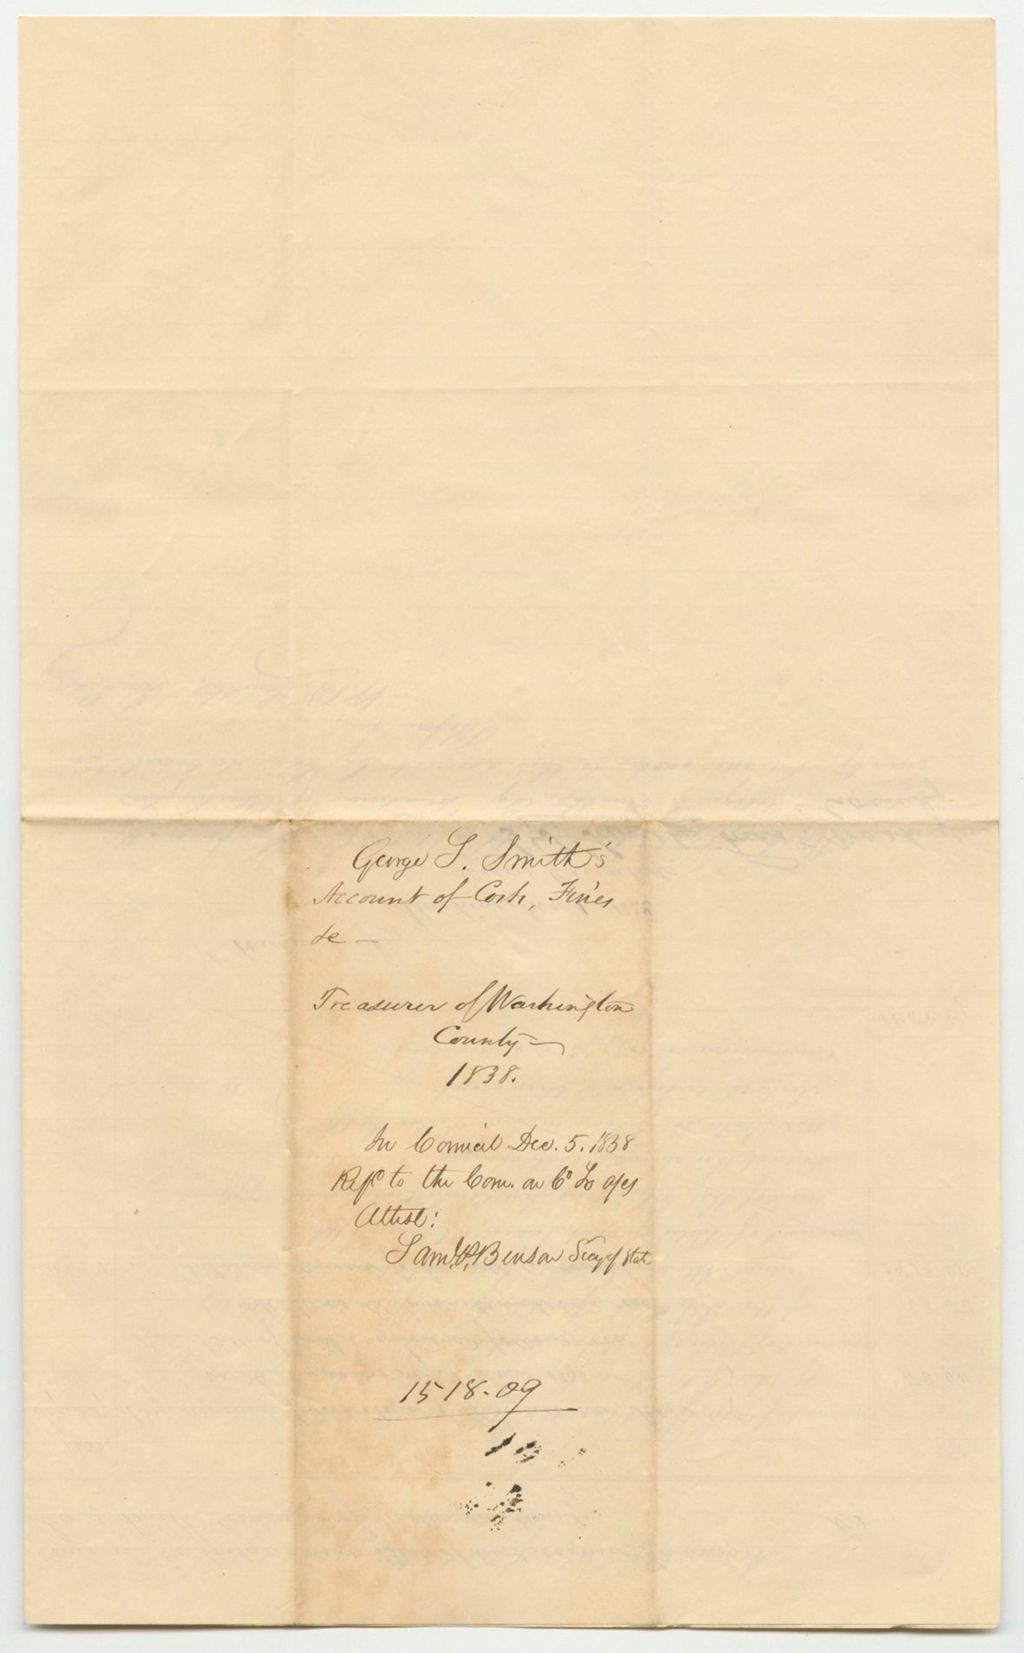 George S. Smith's
Account of Costs, Fines
&c —
Treasurer of Washington
County —
1838.
In Council Dec. 5. 1838
Refd to the Com. on Co
Attest:
Saml. P. Benson Secy of State
1518.09